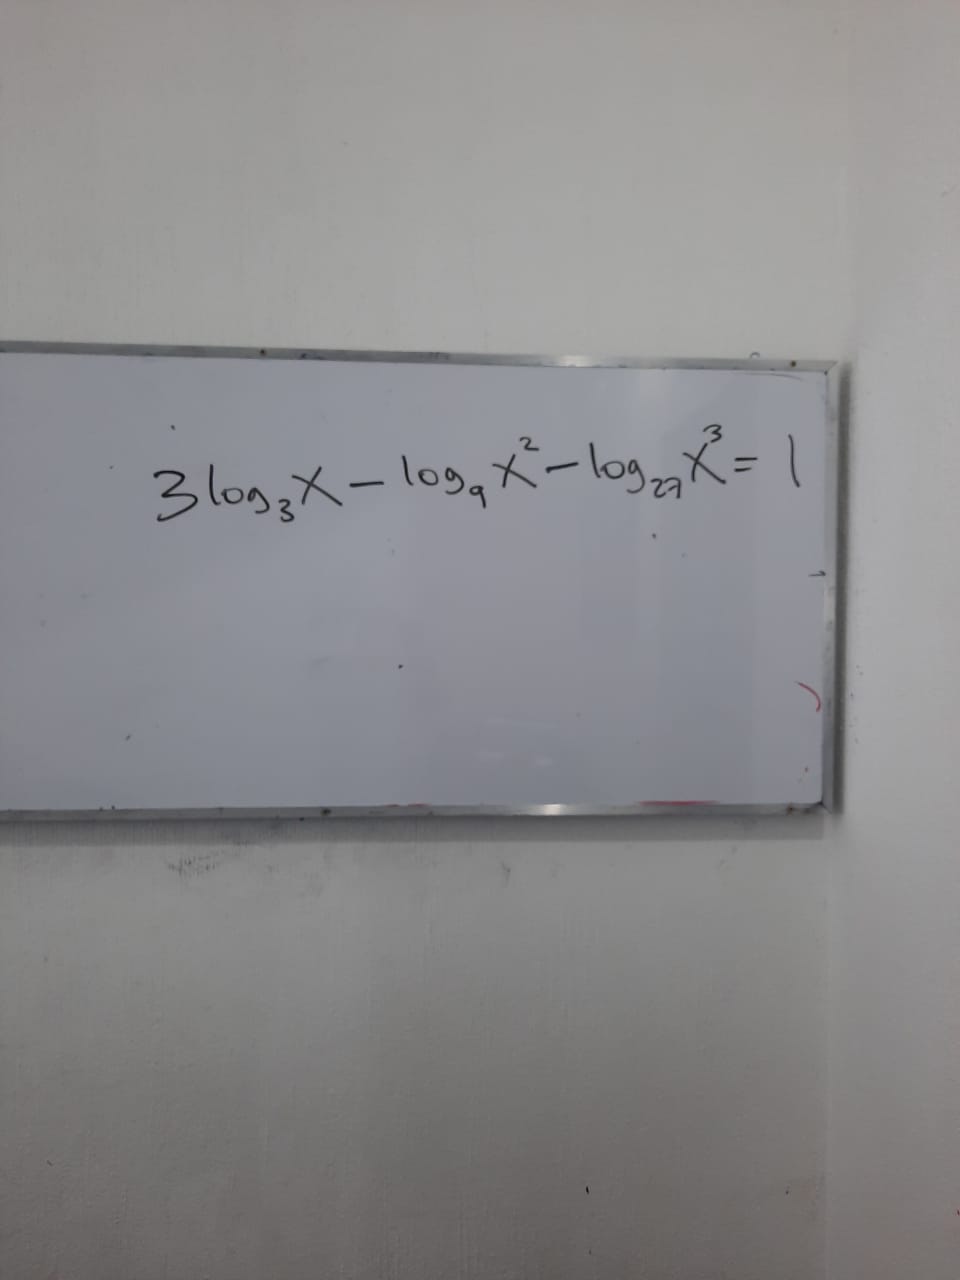 3log₃X – log₉X² – log₂₇X³ = 1